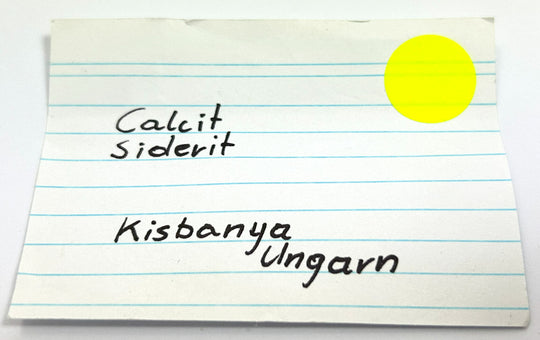 Calcit
Siderit
Kisbanya
Ungarn